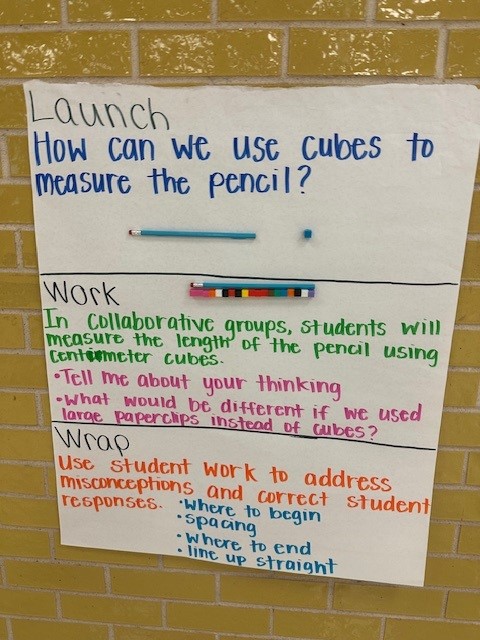 Launch
How can we use cubes to
measure the pencil?
Work
In collaborative groups, students will
measure the length of the pencil using
centimeter cubes.
•Tell me about your thinking
•What would be different if we used
large paperclips instead of cubes?
Wrap
Use student work to address
misconceptions and correct student
responses. •Where to begin
•spacing
•Where to end
•line up straight